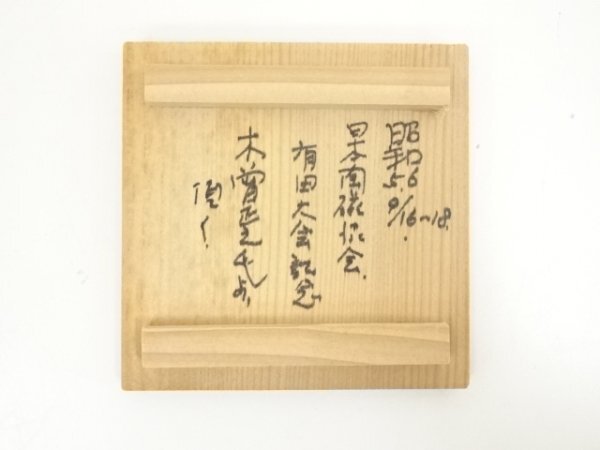 昭和5.6 9/16~18.
日本陶磁協会.
有田大会記念
木曽 氏より
頂く.